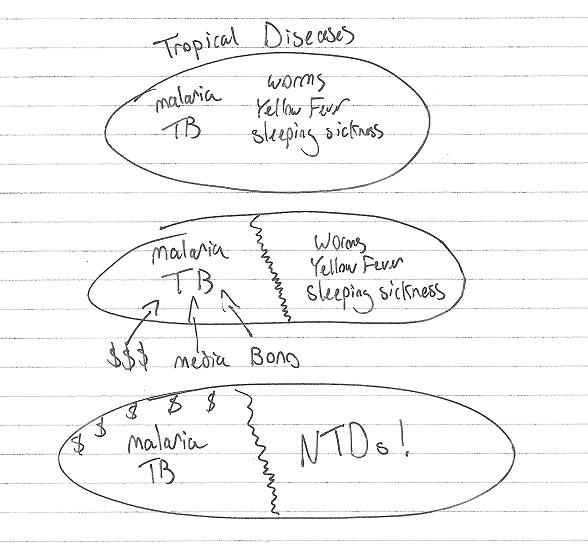 Tropical Diseases
malaria
TB
worms
Yellow Fever
sleeping sickness
malaria
TB
worms
Yellow Fever
sleeping sickness
$$$ media Bono
$ $ $ $ $
malaria
TB
NTDs!